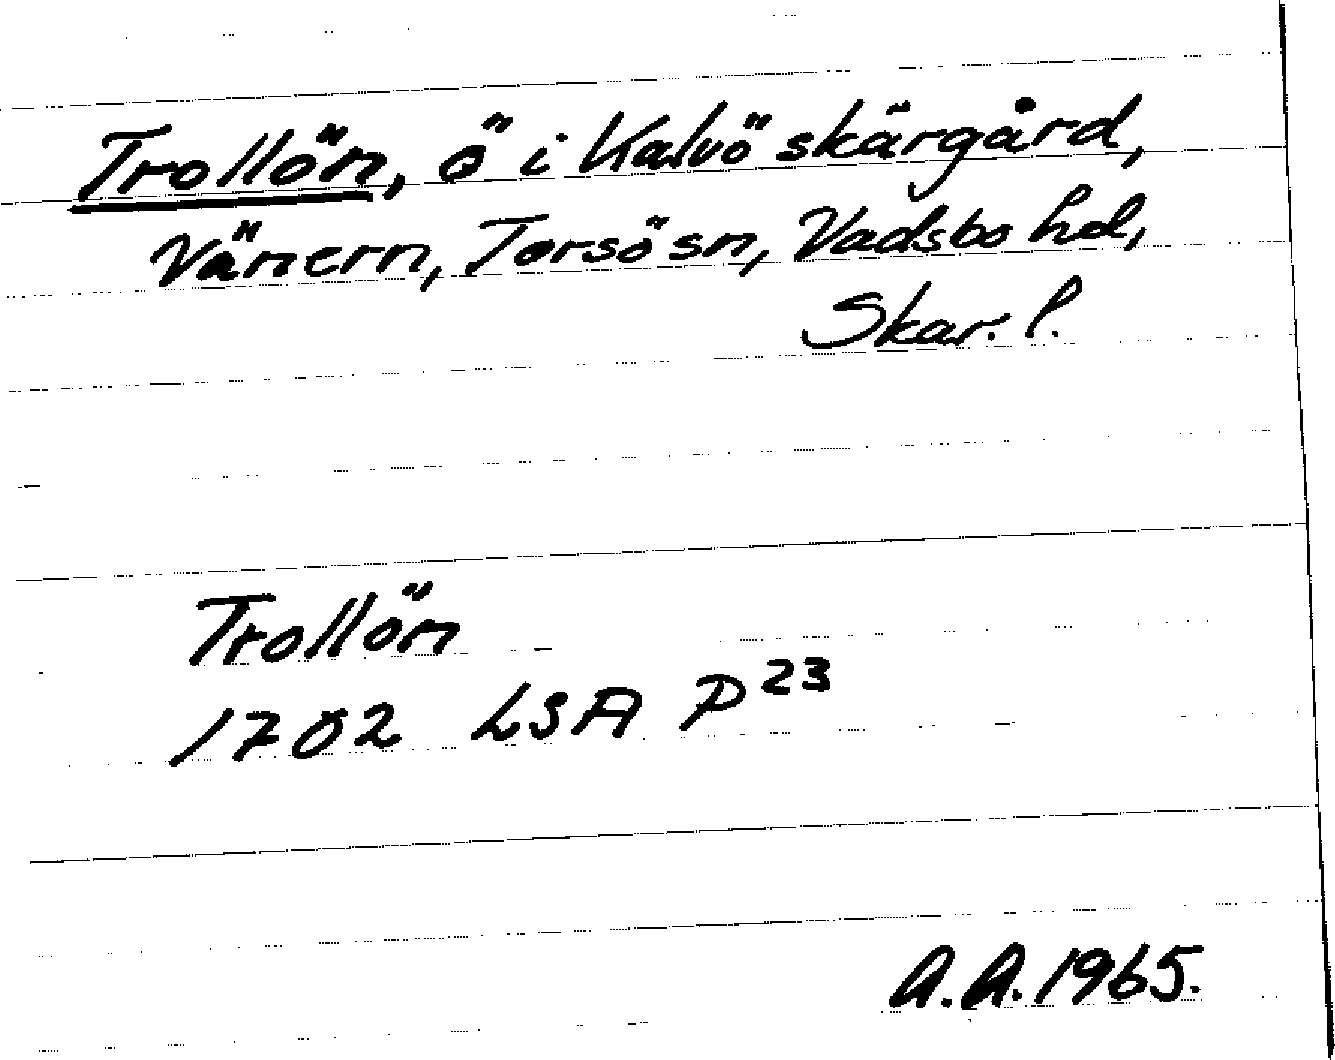 Trollön, ö i Kalvö skärgård,
Vänern, Torsö sn, Vadsbo hd,
Skar. l.
Trollön
1702 LSA P23
A.A. 1965.